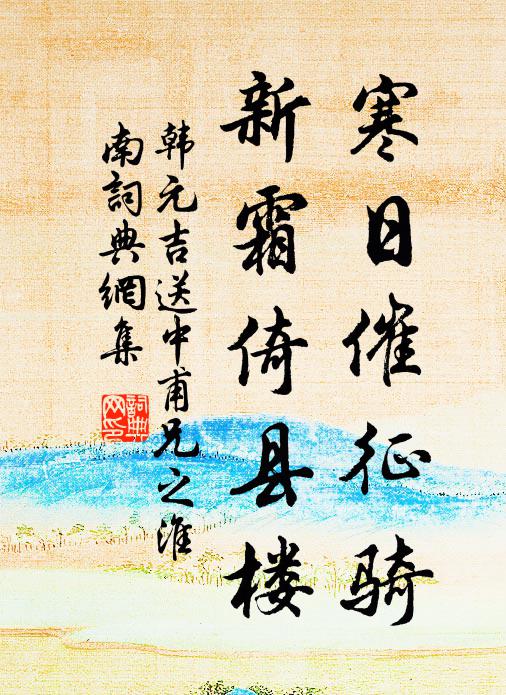 寒日催征骑
新霜倚县楼
韩元吉送中甫兄之淮
南詞典網集
詞典網印